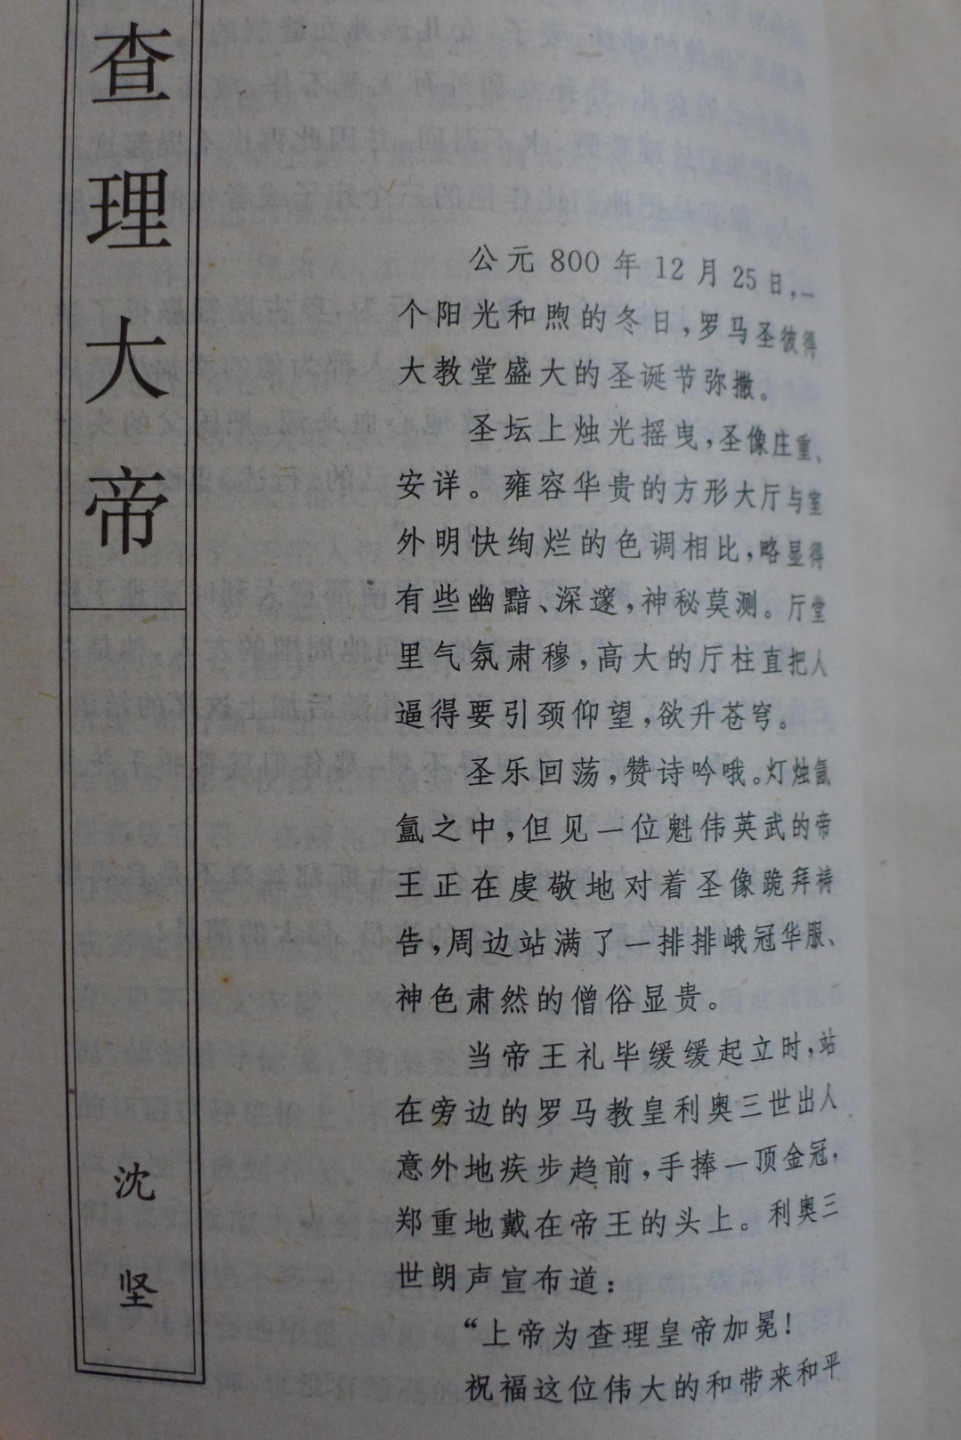 查理大帝
沈坚
公元800年12月25日,一
个阳光和煦的冬日,罗马圣彼得
大教堂盛大的圣诞节弥撒。
圣坛上烛光摇曳,圣像庄重、
安详。雍容华贵的方形大厅与室
外明快绚烂的色调相比,略显得
有些幽黯、深邃,神秘莫测。厅堂
里气氛肃穆,高大的厅柱直把人
逼得要引颈仰望,欲升苍穹。
圣乐回荡,赞诗吟哦。灯烛氤
氲之中,但见一位魁伟英武的帝
王正在虔敬地对着圣像跪拜祷
告,周边站满了一排排峨冠华服、
神色肃然的僧俗显贵。
当帝王礼毕缓缓起立时,站
在旁边的罗马教皇利奥三世出人
意外地疾步趋前,手捧一顶金冠,
郑重地戴在帝王的头上。利奥三
世朗声宣布道:
“上帝为查理皇帝加冕!
祝福这位伟大的和带来和平